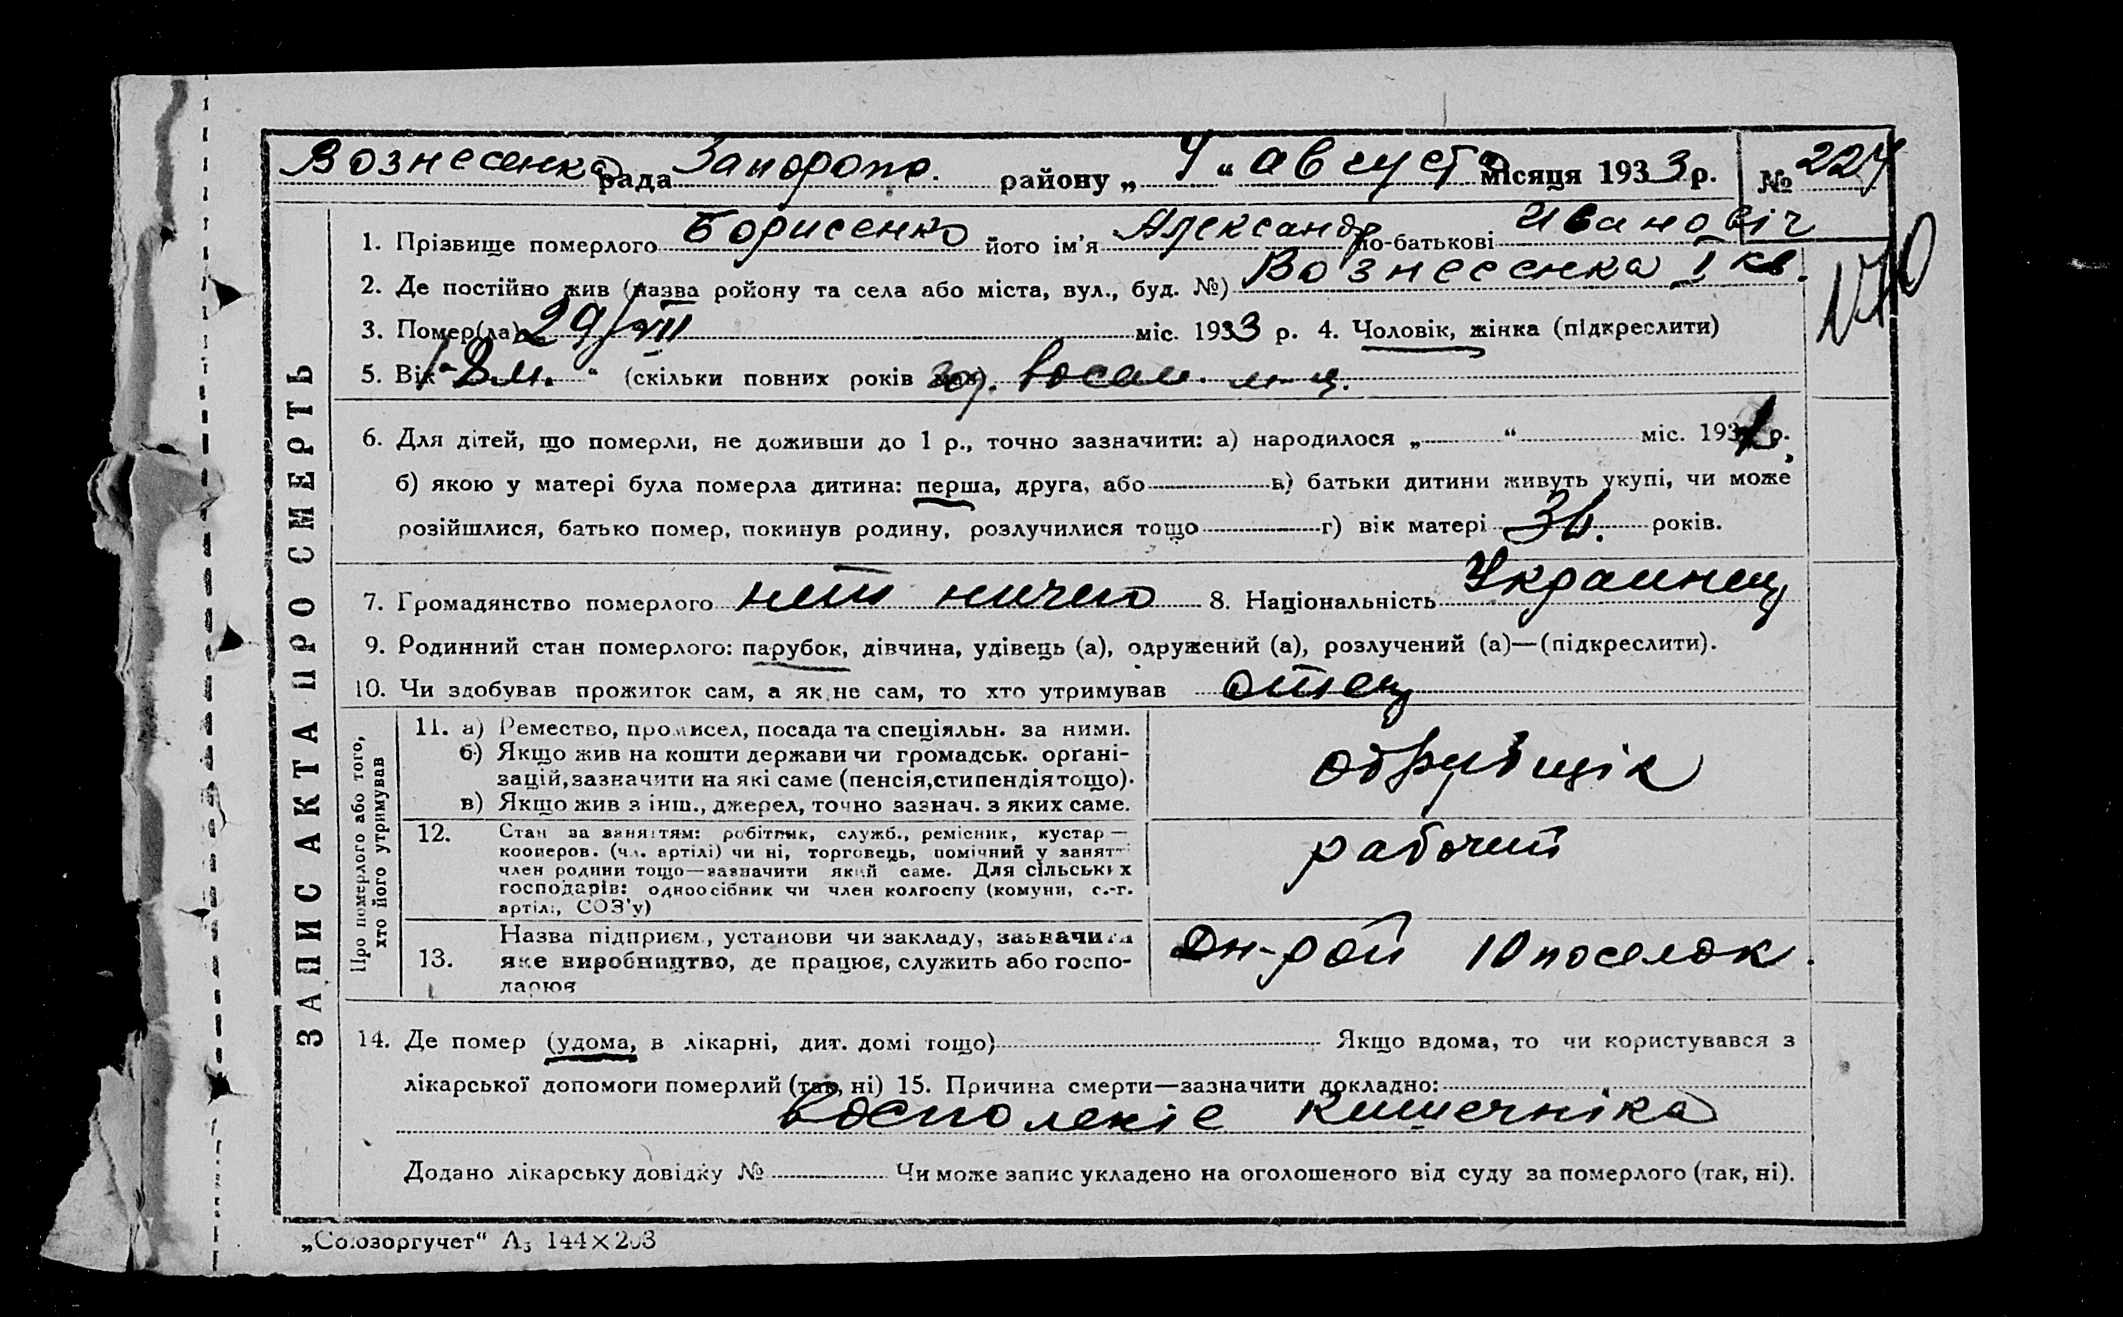 Вознесенка рада Запорожс. району „ 4 “ августа місяця 1933 р. № 224
1. Прізвище померлого Борисенко його ім'я Александр по-батькові Ивановіч
2. Де постійно жив (назва ройону та села або міста, вул., буд. №) Вознесенка I кв.
170
3. Помер(ла) 29/VII міс. 1933 р. 4. Чоловік, жінка (підкреслити)
5. Вік „ 8 м. “ (скільки повних років мав) восем. м-ц.
6. Для дітей, що померли, не доживши до 1 р., точно зазначити: а) народилося „ “ міс. 193 р.
б) якою у матері була померла дитина: перша, друга, або в) батьки дитини живуть укупі, чи може
розійшлися, батько помер, покинув родину, розлучилися тощо г) вік матері років.
7. Громадянство померлого нет ничего 8. Національність Украинец
9. Родинний стан померлого: парубок, дівчина, удівець (а), одружений (а), розлучений (а)—(підкреслити).
10. Чи здобував прожиток сам, а як не сам, то хто утримував отец
ЗАПИС АКТА ПРО СМЕРТЬ
Про померлого або того,
хто його утримував
11. а) Ремество, промисел, посада та спеціяльн. за ними.
б) Якщо жив на кошти держави чи громадськ. органі-
зацій, зазначити на які саме (пенсія, стипендія тощо).
в) Якщо жив з інш., джерел, точно зазнач. з яких саме.
обрубщік
12. Стан за заняттям: робітник, служб., ремісник, кустар—
кооперов. (чл. артілі) чи ні, торговець, помічний у занятті
член родини тощо—зазначити який саме. Для сільських
господарів: одноосібник чи член колгоспу (комуни, с.-г.
артілі, СОЗ'у)
рабочий
13. Назва підприєм., установи чи закладу, зазначити
яке виробництво, де працює, служить або госпо-
дарює
Дн-рой 10 поселок.
14. Де помер (удома, в лікарні, дит. домі тощо) Якщо вдома, то чи користувався з
лікарської допомоги померлий (так, ні) 15. Причина смерти—зазначити докладно:
восполеніе кишечніка
Додано лікарську довідку № Чи може запис укладено на оголошеного від суду за померлого (так, ні).
„Союзоргучет“ А₃ 144×203